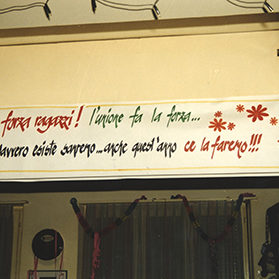 forza ragazzi! l'unione fa la forza...
davvero esiste sanremo...anche quest'anno ce la faremo!!!